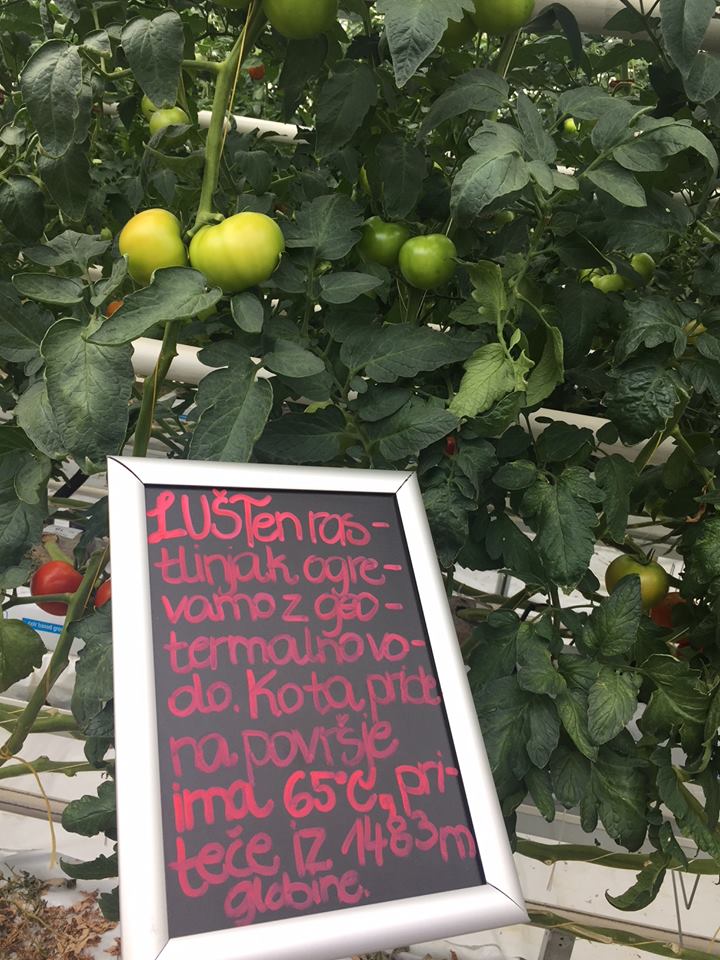 LUŠTen ras-
tlinjak ogre-
vamo z geo-
termalno vo-
do. Ko ta pride
na površje
ima 65°C, pri-
teče iz 1483m
globine.